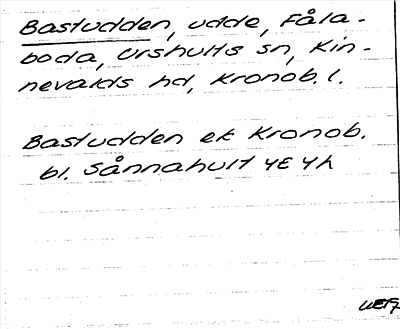 Bastudden, udde, Fåla-
boda, Urshults sn, Kin-
nevalds hd, Kronob. l.
Bastudden ek Kronob.
bl. Sånnahult 4E 4h